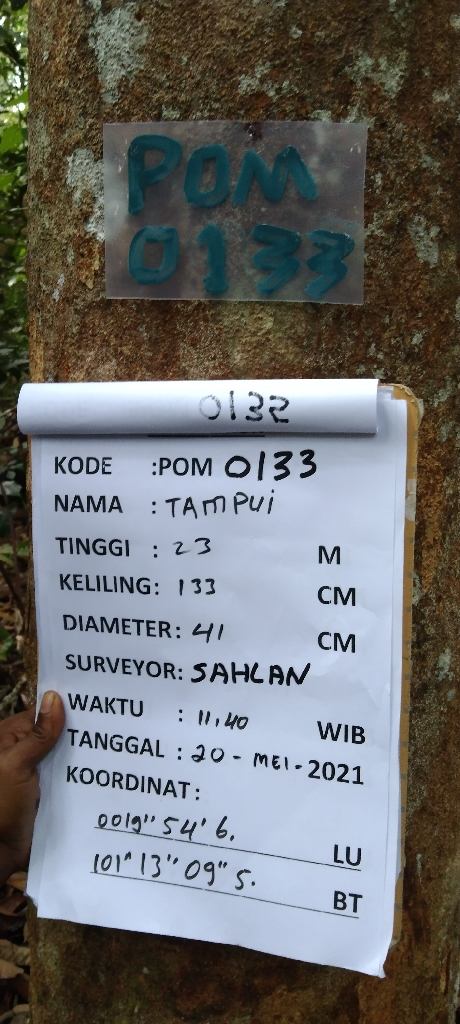 POM
0133
0132
KODE :POM 0133
NAMA : TAMPUi
TINGGI : 23 M
KELILING: 133 CM
DIAMETER: 41 CM
SURVEYOR: SAHLAN
WAKTU : 11.40 WIB
TANGGAL : 20 - MEI - 2021
KOORDINAT:
0019" 54' 6. LU
101" 13" 09" 5. BT